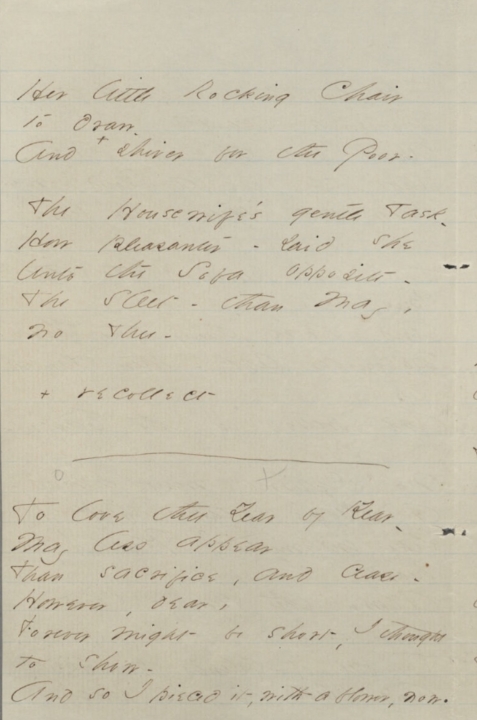 Her little Rocking Chair
to draw.
And + shiver for the Poor -
The Housewife's gentle Task -
How pleasanter - said she
Unto the Sofa opposite -
The Sleet - than May,
no Thee -
+ recollect
To love thee Year by Year -
May less appear
Than sacrifice, and cease -
However, dear,
Forever might be short, I thought
to show -
And so I pieced it, with a flower, now.